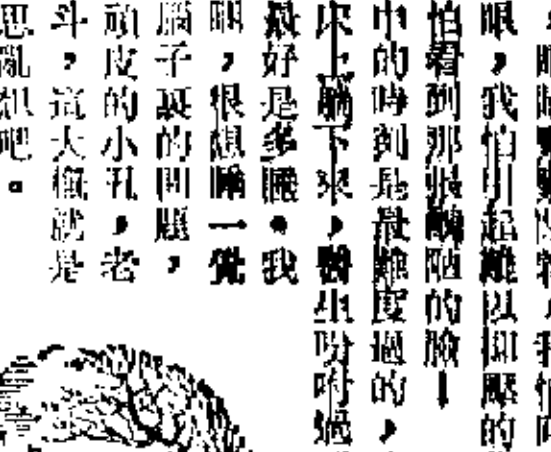 眼，我怕引起難以抑壓的
怕看到那張醜陋的臉！
中的時刻是最難度過的，
床上躺下來，醫生吩咐過
最好是多睡。我
眼，很想睡一覺
腦子裏的問題，
頑皮的小孔，老
斗，這大概就是
思亂想吧。